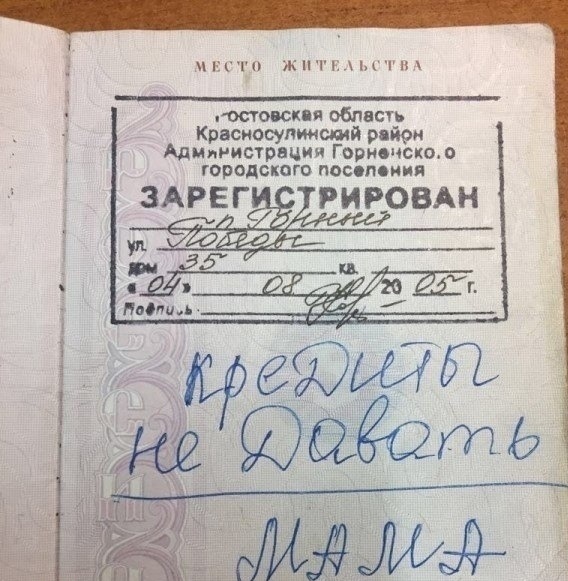 МЕСТО ЖИТЕЛЬСТВА
Ростовская область
Красносулинский район
Администрация Горненского
городского поселения
ЗАРЕГИСТРИРОВАН
п. Горный
ул. Победы
дом 35 кв.
« 04 » 08 20 05 г.
Подпись
Кредиты
не Давать
МАМА